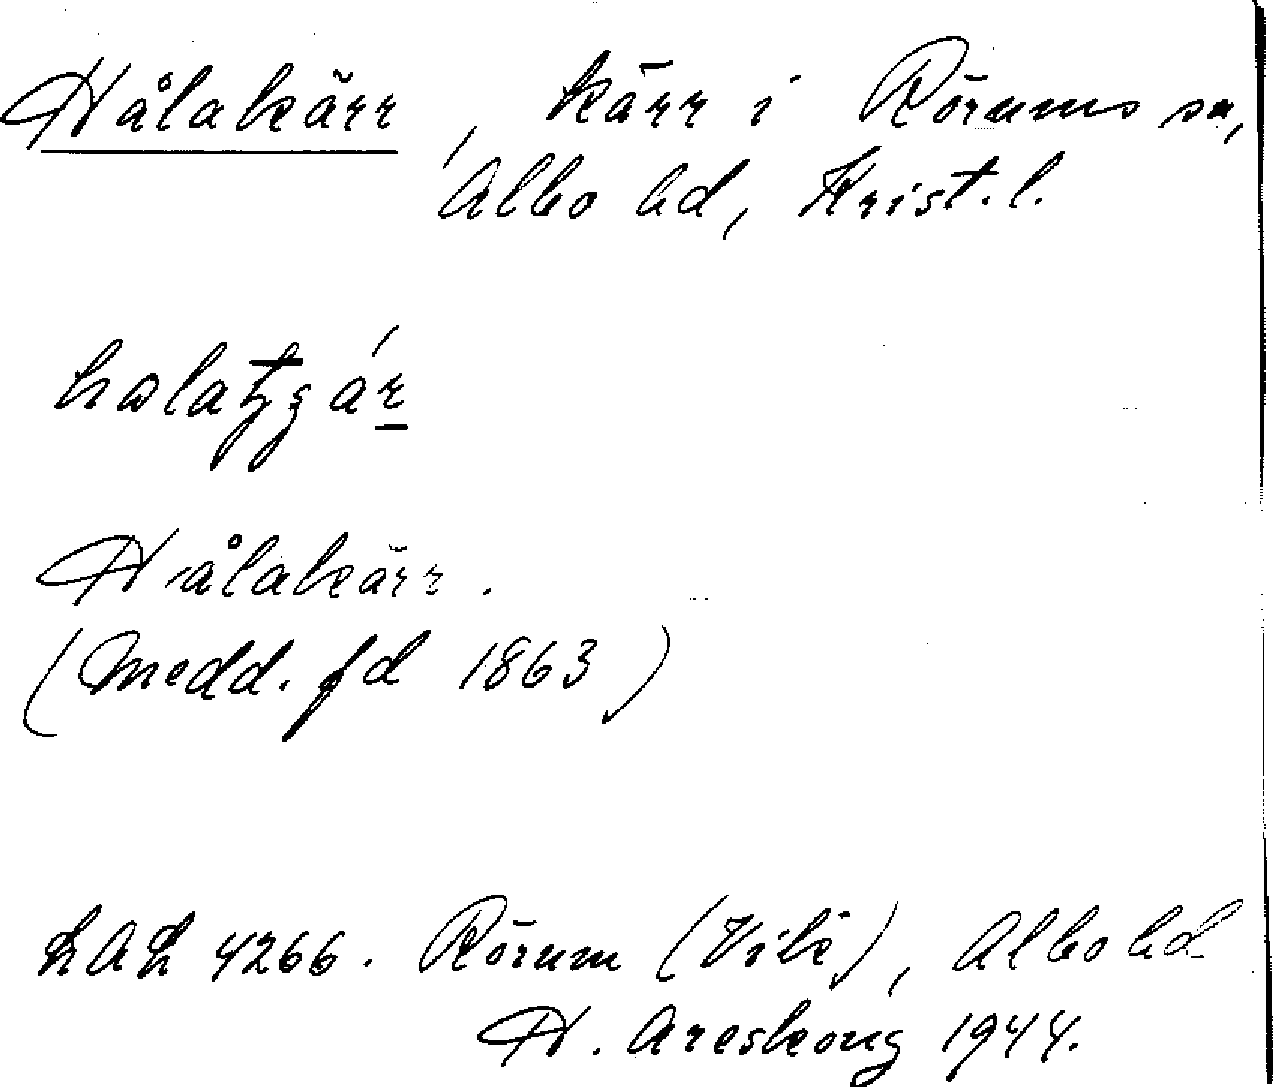 Hålakärr, kärr i Rörums sn,
Albo hd, Krist. l.
Hålakärr.
(Medd. fd 1863)
LAL 4266. Rörum (Vik), Albo hd
H. Areskoug 1944.